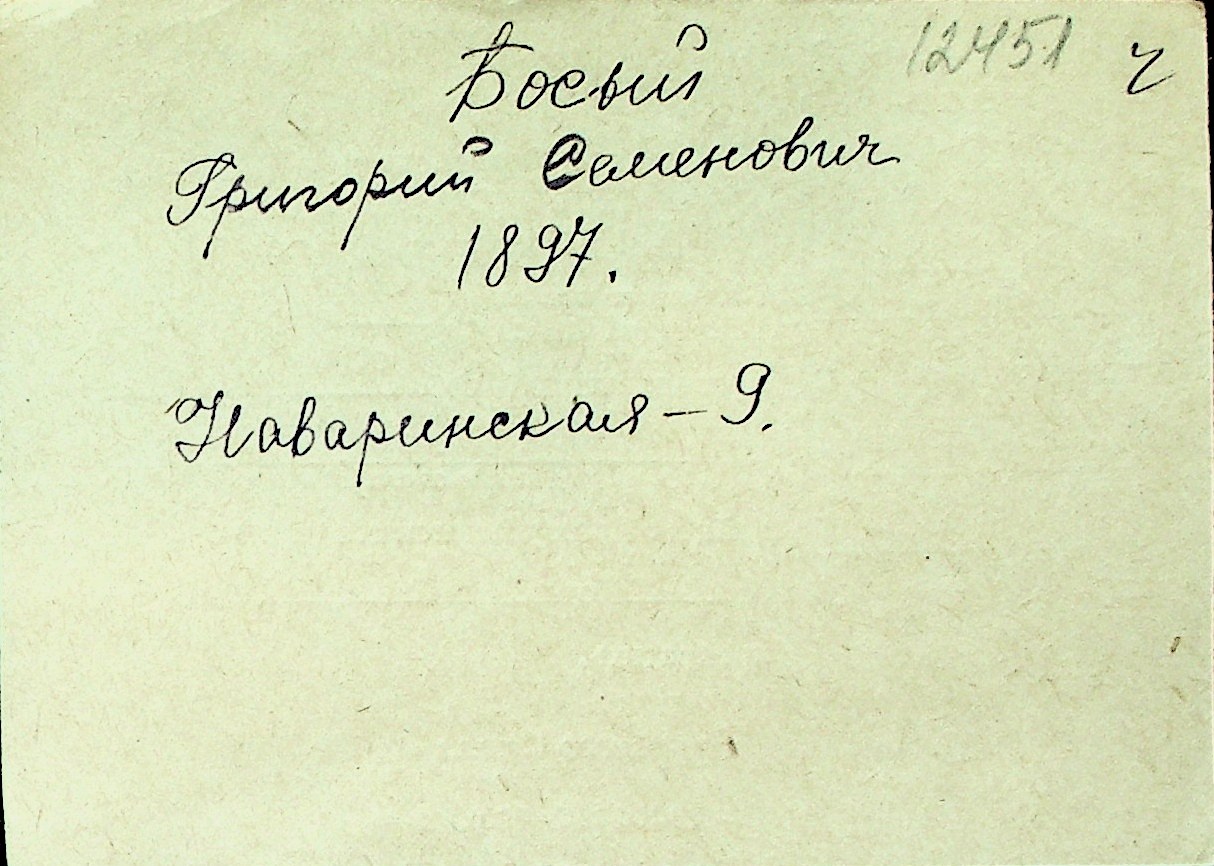 12451 ч
Босый
Григорий Семенович
1897.
Наваринская – 9.